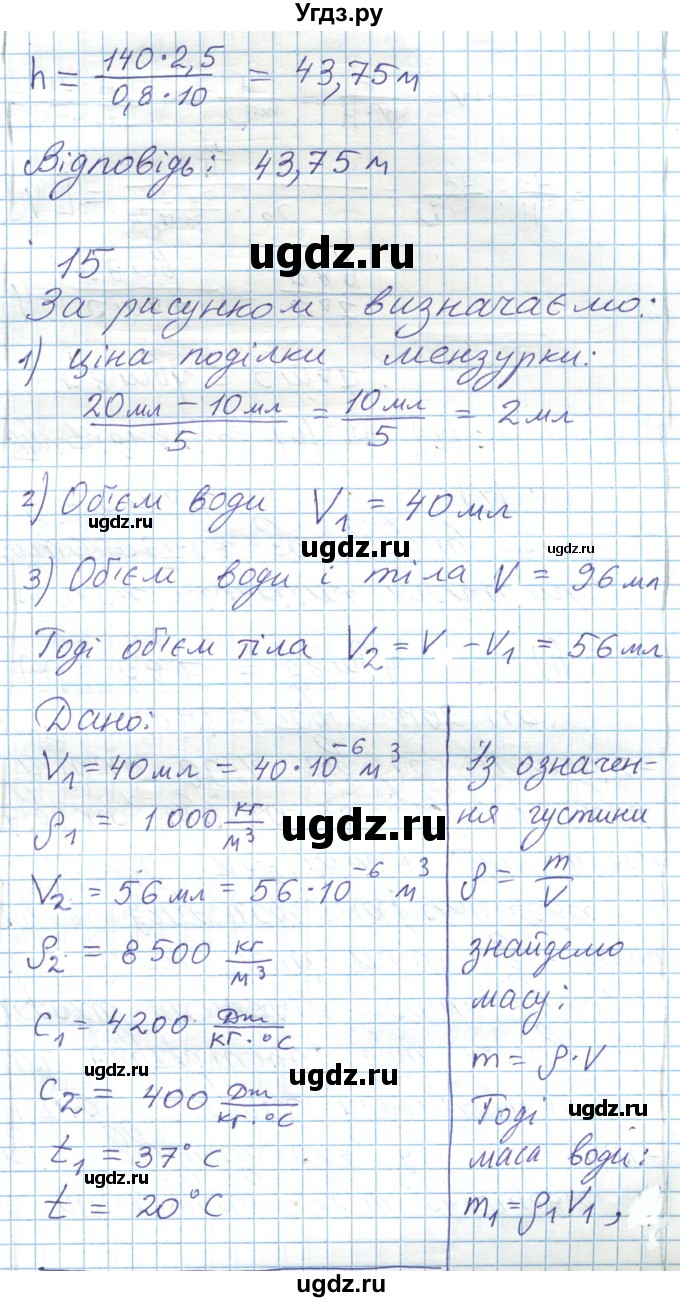 Угдз.ру
h = 140·2,5 / 0,8·10 = 43,75 м
Відповідь: 43,75 м
ugdz.ru
15
За рисунком визначаємо:
1) ціна поділки мензурки:
20мл – 10мл / 5 = 10мл / 5 = 2мл
2) Об'єм води V₁ = 40мл
ugdz.ru
ugdz.ru
ugdz.ru
3) Об'єм води і тіла V = 96мл
Тоді об'єм тіла V₂ = V – V₁ = 56мл
Дано:
V₁ = 40мл = 40·10⁻⁶ м³
ρ₁ = 1000 кг/м³
ugdz.ru
V₂ = 56мл = 56·10⁻⁶ м³
ρ₂ = 8500 кг/м³
c₁ = 4200 Дж/кг·°C
ugdz.ru
c₂ = 400 Дж/кг·°C
ugdz.ru
t₁ = 37°C
ugdz.ru
t = 20°C
Із означен-
ня густини
ρ = m/V
знайдемо
масу:
m = ρ·V
Тоді
ugdz.ru
маса води:
m₁ = ρ₁V₁,
ugdz.ru